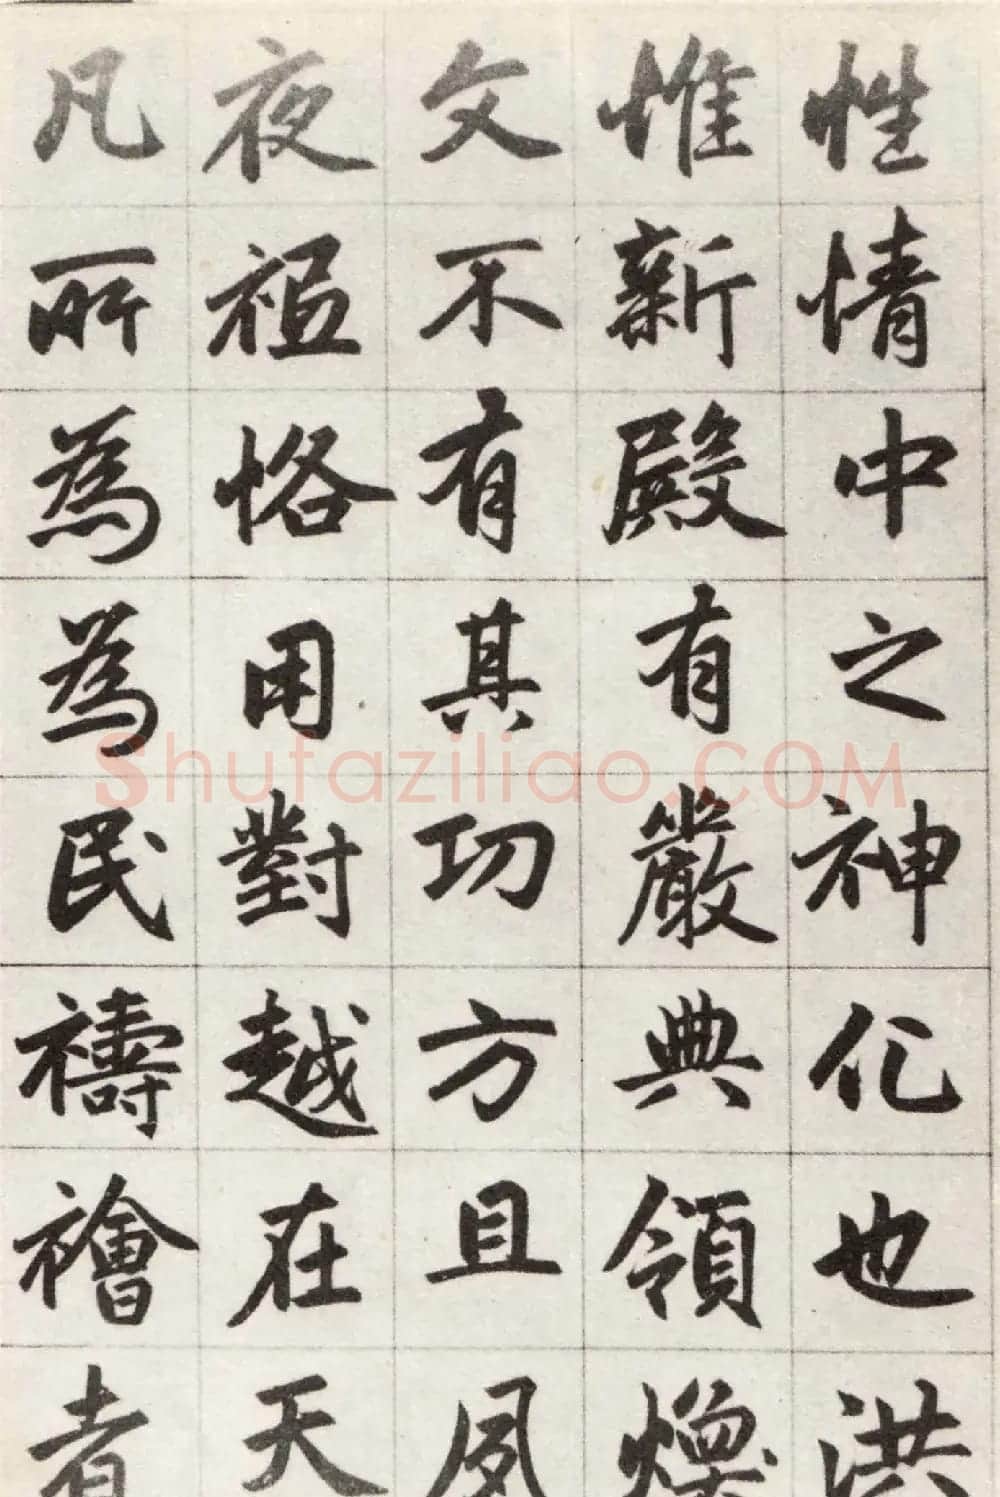 性情中之神化也洪
惟新殿有嚴典領煥
文不有其功方且夙
夜祗恪用對越在天
凡所為為民禱禬者
Shufaziliao.COM